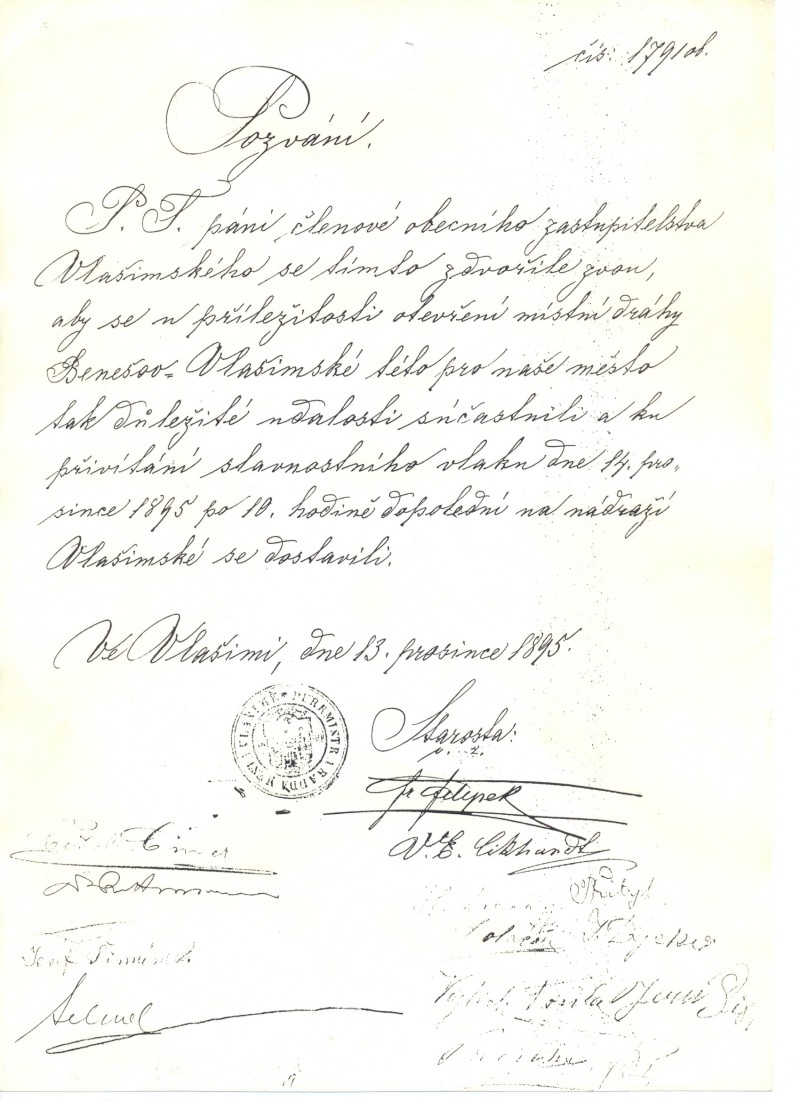 čís: 1791 ob.
Pozvání.
P. T. páni členové obecního zastupitelstva
Vlašimského se tímto zdvořile zvou,
aby se u příležitosti otevření místní dráhy
Benešov-Vlašimské této pro naše město
tak důležité události súčastnili a ku
přivítání slavnostního vlaku dne 14. pro-
since 1895 po 10. hodině dopolední na nádraží
Vlašimské se dostavili.
Ve Vlašimi, dne 13. prosince 1895.
PURKMISTR I RADDA
Starosta:
Fr Filipek
Josef